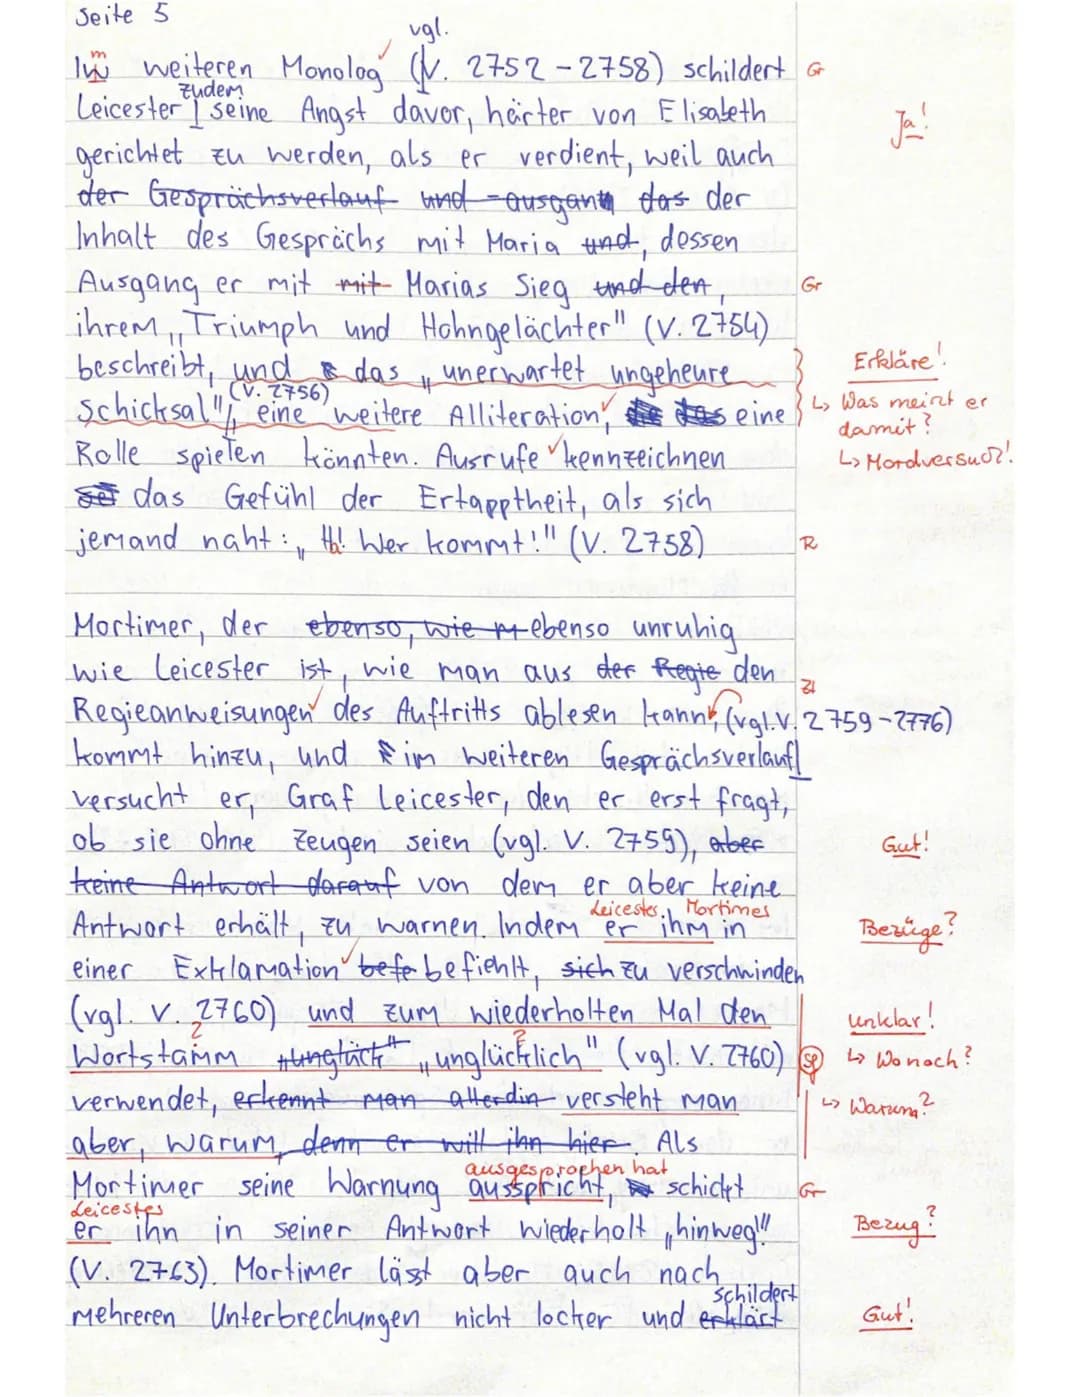 Seite 5
vgl.
Im weiteren Monolog (V. 2752-2758) schildert Gr
zudem
Leicester seine Angst davor, härter von Elisabeth
Ja!
gerichtet zu werden, als er verdient, weil auch
der Gesprächsverlauf und -ausgang das der
Inhalt des Gesprächs mit Maria und, dessen
Ausgang er mit mit Marias Sieg und den, Gr
ihrem „Triumph und Hohngelächter" (V. 2754)
beschreibt, und das „unerwartet ungeheure Erkläre!
(V. 2756)
Schicksal", eine weitere Alliteration, die das eine ↳ Was meint er damit?
Rolle spielen könnten. Ausrufe kennzeichnen ↳ Mordversuch?!
das Gefühl der Ertapptheit, als sich
jemand naht: „Ha! Wer kommt!" (V. 2758) R
Mortimer, der ebenso, wie M ebenso unruhig
wie Leicester ist, wie man aus der Regie den
Regieanweisungen des Auftritts ablesen kann, (vgl. V. 2759-2776)
kommt hinzu, und im weiteren Gesprächsverlauf
versucht er, Graf Leicester, den er erst fragt,
ob sie ohne Zeugen seien (vgl. V. 2759), aber Gut!
keine Antwort darauf von dem er aber keine
Leicester Mortimer
Antwort erhält, zu warnen. Indem er ihm in Bezüge?
einer Exklamation befe befiehlt, sich zu verschwinden
(vgl. V. 2760) und zum wiederholten Mal den unklar!
Wortstamm „unglück" „unglücklich" (vgl. V. 2760) Sp ↳ Wonach?
verwendet, erkennt man allerdin versteht man ↳ Warum?
aber, warum, denn er will ihn hier. Als
ausgesprochen hat
Mortimer seine Warnung ausspricht, schickt Gr
Leicester
er ihn in seiner Antwort wiederholt „hinweg!" Bezug?
(V. 2763). Mortimer lässt aber auch nach
schildert
mehreren Unterbrechungen nicht locker und erklärt Gut!